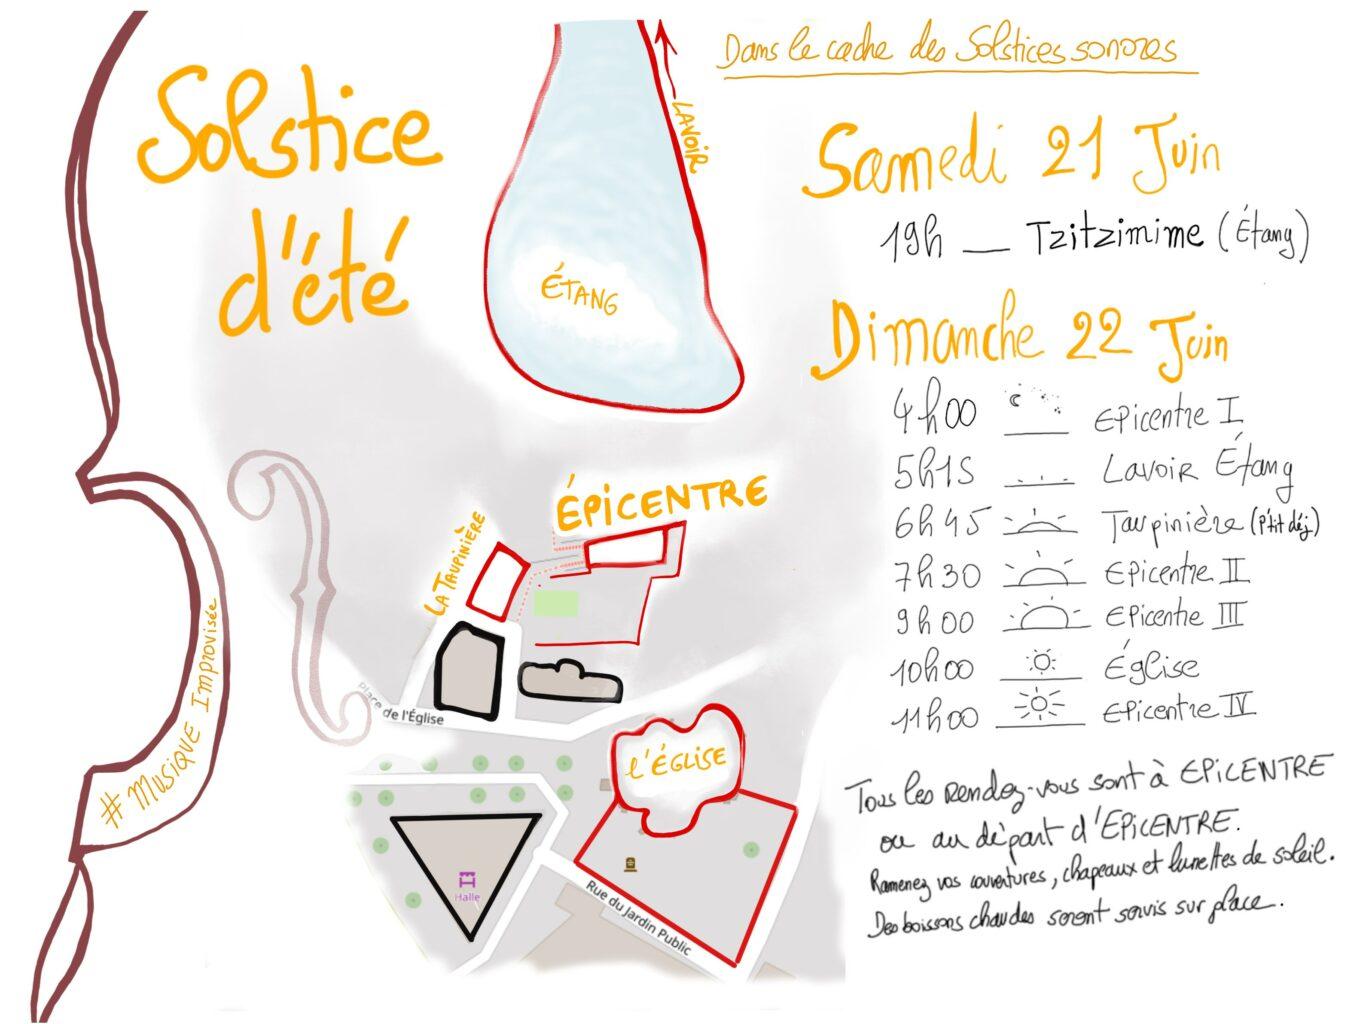 Solstice
d'été
Dans le cadre des Solstices sonores
Samedi 21 Juin
19h — Tzitzimime (Étang)
Dimanche 22 Juin
4h00 Epicentre I
5h15 Lavoir Étang
6h45 Taupinière (P'tit déj)
7h30 Epicentre II
9h00 Epicentre III
10h00 Église
11h00 Epicentre IV
Tous les rendez-vous sont à EPICENTRE
ou au départ d'EPICENTRE.
Ramenez vos couvertures, chapeaux et lunettes de soleil.
Des boissons chaudes seront servis sur place.
LAVOIR
ÉTANG
ÉPICENTRE
LA TAUPINIÈRE
Place de l'Église
l'ÉGLISE
Halle
Rue du Jardin Public
# MUSIQUE Improvisée